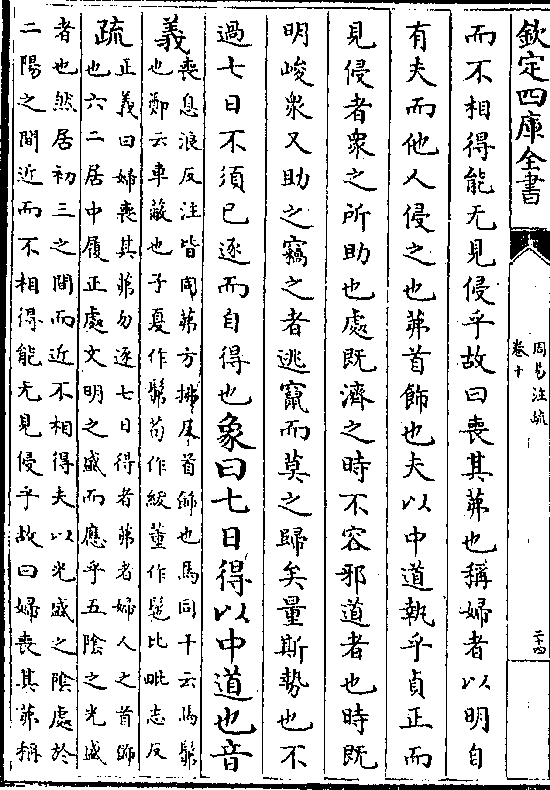 欽定四庫全書
周易注疏
卷十
二十四
而不相得能无見侵乎故曰喪其茀也稱婦者以明自
有夫而他人侵之也茀首飾也夫以中道執乎貞正而
見侵者衆之所助也處既濟之時不容邪道者也時既
明峻衆又助之竊之者逃竄而莫之歸矣量斯勢也不
過七日不須已逐而自得也象曰七日得以中道也音
義
喪息浪反注皆同茀方拂反首飾也馬同干云馬髴
也鄭云車蔽也子夏作髴荀作紱董作髢比毗志反
疏
正義曰婦喪其茀勿逐七日得者茀者婦人之首飾
也六二居中履正處文明之盛而應乎五陰之光盛
者也然居初三之間而近不相得夫以光盛之陰處於
二陽之間近而不相得能无見侵乎故曰婦喪其茀稱